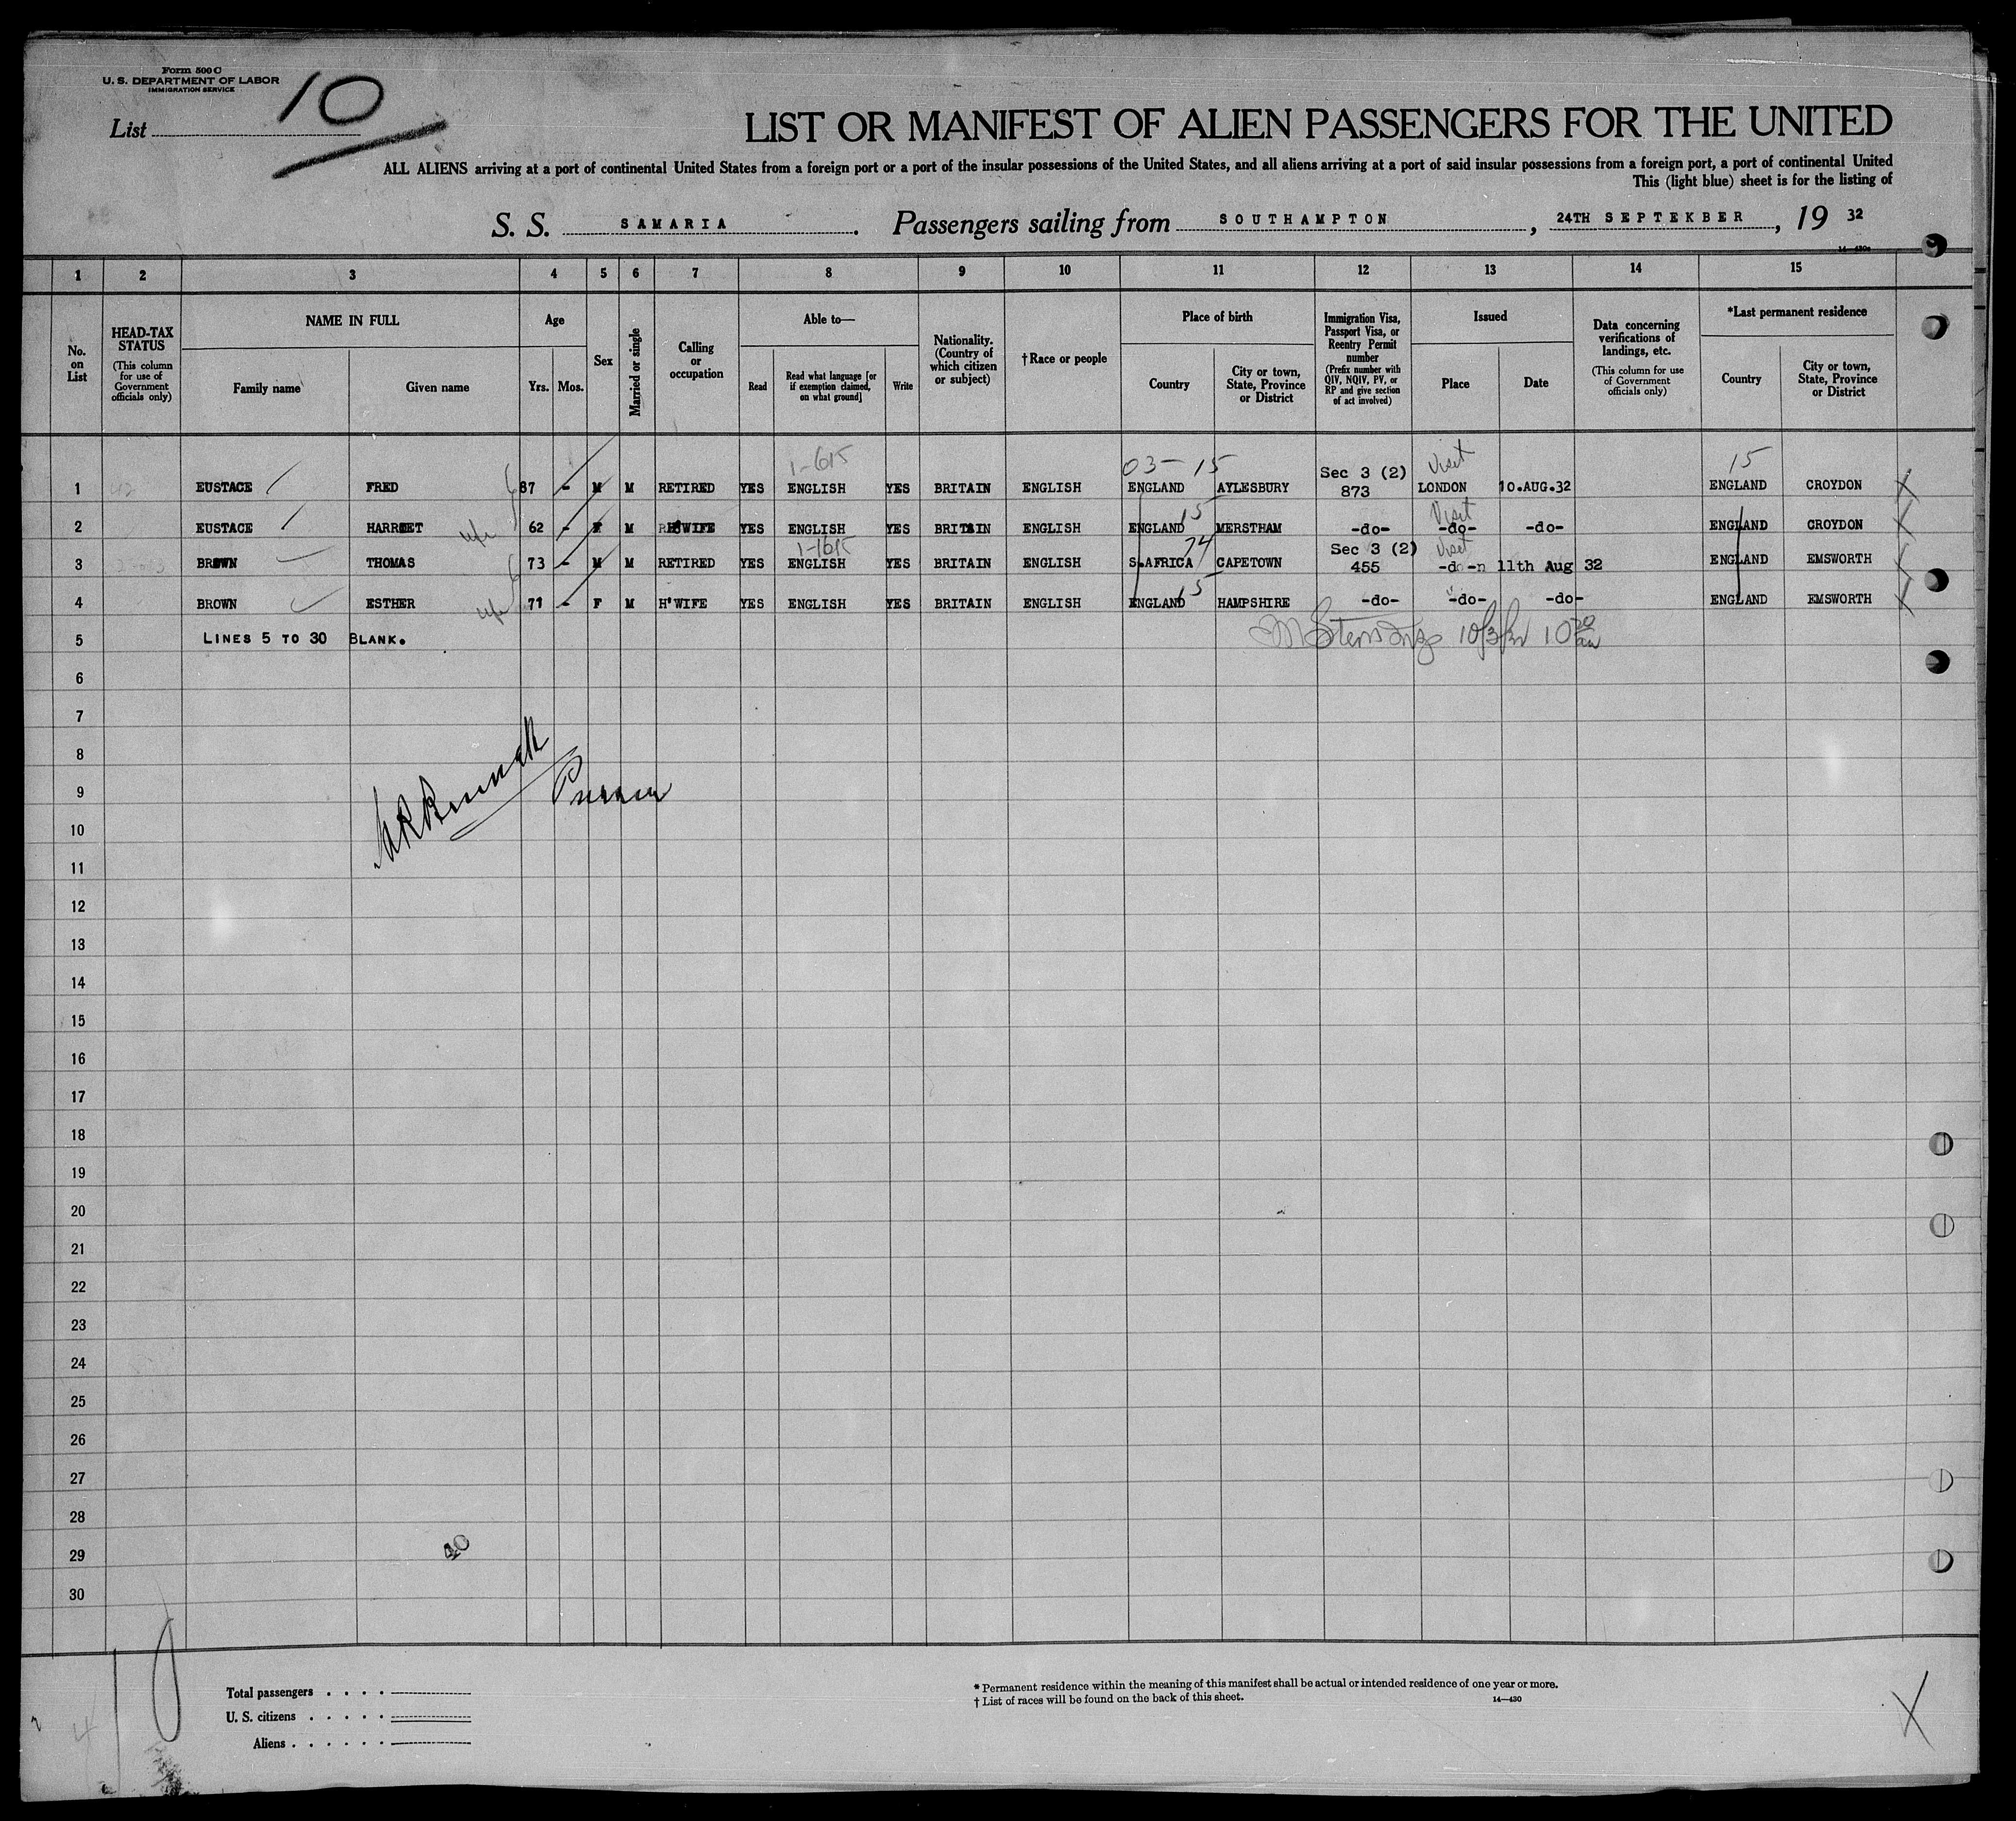 Form 500 C
U. S. DEPARTMENT OF LABOR
IMMIGRATION SERVICE
List 10
LIST OR MANIFEST OF ALIEN PASSENGERS FOR THE UNITED
ALL ALIENS arriving at a port of continental United States from a foreign port or a port of the insular possessions of the United States, and all aliens arriving at a port of said insular possessions from a foreign port, a port of continental United
This (light blue) sheet is for the listing of
S. S. SAMARIA. Passengers sailing from SOUTHAMPTON, 24TH SEPTEKBER, 19 32
1 2 3 4 5 6 7 8 9 10 11 12 13 14 15
No. on List
HEAD-TAX STATUS (This column for use of Government officials only)
NAME IN FULL
Family name
Given name
Age
Yrs. Mos.
Sex
Married or single
Calling or occupation
Able to—
Read
Read what language [or if exemption claimed, on what ground]
Write
Nationality. (Country of which citizen or subject)
†Race or people
Place of birth
Country
City or town, State, Province or District
Immigration Visa, Passport Visa, or Reentry Permit number (Prefix number with QIV, NQIV, PV, or RP and give section of act involved)
Issued
Place
Date
Data concerning verifications of landings, etc. (This column for use of Government officials only)
*Last permanent residence
Country
City or town, State, Province or District
1-615 03-15 Visit 15
1 EUSTACE FRED 67 - M M RETIRED YES ENGLISH YES BRITAIN ENGLISH ENGLAND AYLESBURY Sec 3 (2) 873 LONDON 10.AUG.32 ENGLAND CROYDON
15 Visit
2 EUSTACE HARRIET wife 62 - F M H'WIFE YES ENGLISH YES BRITAIN ENGLISH ENGLAND MERSTHAM -do- -do- -do- ENGLAND CROYDON
1-1615 74 Visit
3 BROWN THOMAS 73 - M M RETIRED YES ENGLISH YES BRITAIN ENGLISH S.AFRICA CAPETOWN Sec 3 (2) 455 -do-n 11th Aug 32 ENGLAND EMSWORTH
15
4 BROWN ESTHER wife 71 - F M H'WIFE YES ENGLISH YES BRITAIN ENGLISH ENGLAND HAMPSHIRE -do- -do- -do- ENGLAND EMSWORTH
5 LINES 5 TO 30 BLANK.
6
7
8
9
Purser
10
11
12
13
14
15
16
17
18
19
20
21
22
23
24
25
26
27
28
29
40
30
Total passengers . . . .
U. S. citizens . . . . .
Aliens . . . . . .
* Permanent residence within the meaning of this manifest shall be actual or intended residence of one year or more.
† List of races will be found on the back of this sheet.
14—430